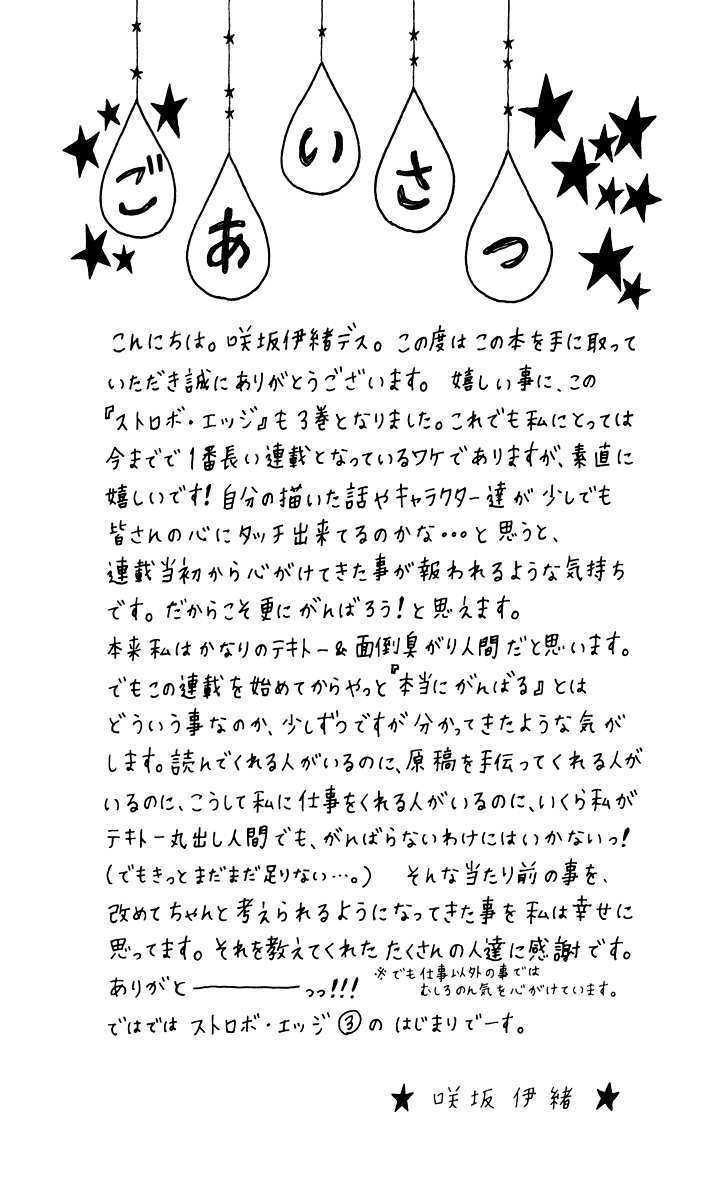 ごあいさつ
こんにちは。咲坂伊緒デス。この度はこの本を手に取って
いただき誠にありがとうございます。 嬉しい事に、この
『ストロボ・エッジ』も3巻となりました。これでも私にとっては
今までで1番長い連載となっているワケでありますが、素直に
嬉しいです!自分の描いた話やキャラクター達が少しでも
皆さんの心にタッチ出来てるのかな…と思うと、
連載当初から心がけてきた事が報われるような気持ち
です。だからこそ更にがんばろう!と思えます。
本来私はかなりのテキトー&面倒臭がり人間だと思います。
でもこの連載を始めてからやっと『本当にがんばる』とは
どういう事なのか、少しずつですが分かってきたような気が
します。読んでくれる人がいるのに、原稿を手伝ってくれる人が
いるのに、こうして私に仕事をくれる人がいるのに、いくら私が
テキトー丸出し人間でも、がんばらないわけにはいかないっ!
(でもきっとまだまだ足りない…。) そんな当たり前の事を、
改めてちゃんと考えられるようになってきた事を私は幸せに
思ってます。それを教えてくれたたくさんの人達に感謝です。
ありがと――――っっ!!!
※でも仕事以外の事では
むしろのん気を心がけています。
ではでは ストロボ・エッジ③の はじまりでーす。
★ 咲坂伊緒 ★